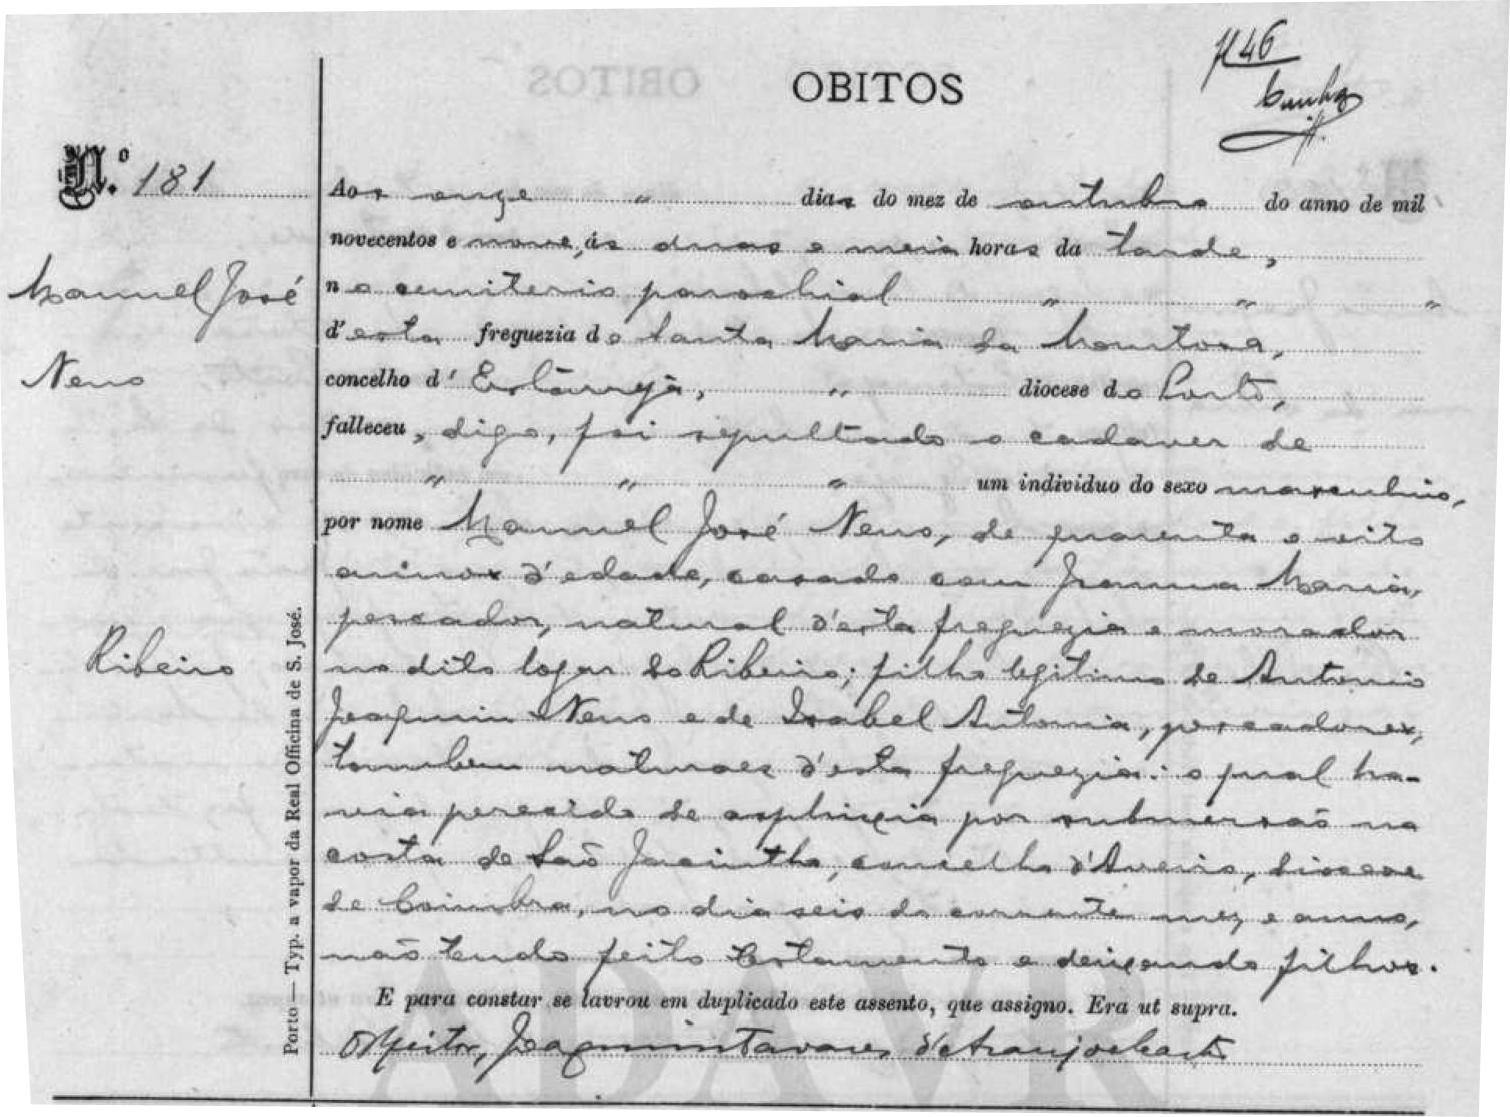 fl 46
Cunha
OBITOS
N.º 181
Manuel José
Neno
Ribeiro
Aos onze " dias do mez de outubro do anno de mil
novecentos e nove, ás duas e meia horas da tarde,
no cemiterio parochial " " "
d'esta freguezia de Santa Maria da Murtosa,
concelho d' Estarreja, " diocese do Porto,
falleceu, digo, foi sepultado o cadaver de
" " " um individuo do sexo masculino,
por nome Manuel José Neno, de quarenta e oito
annos d'edade, casado com Joanna Maria,
pescador, natural d'esta freguezia e morador
no dito logar do Ribeiro; filho legitimo de Antonio
Joaquim Neno e de Isabel Antonia, pescadores,
tambem naturaes d'esta freguezia: o qual ha-
via perecido de asphixia por submersão na
costa de São Jacintho, concelho d'Aveiro, diocese
de Coimbra, no dia seis do corrente mez e anno,
não tendo feito testamento e deixando filhos.
E para constar se lavrou em duplicado este assento, que assigno. Era ut supra.
O Reitor, Joaquim Tavares d'Araujo e Castro
Porto — Typ. a vapor da Real Officina de S. José.
ADAVR